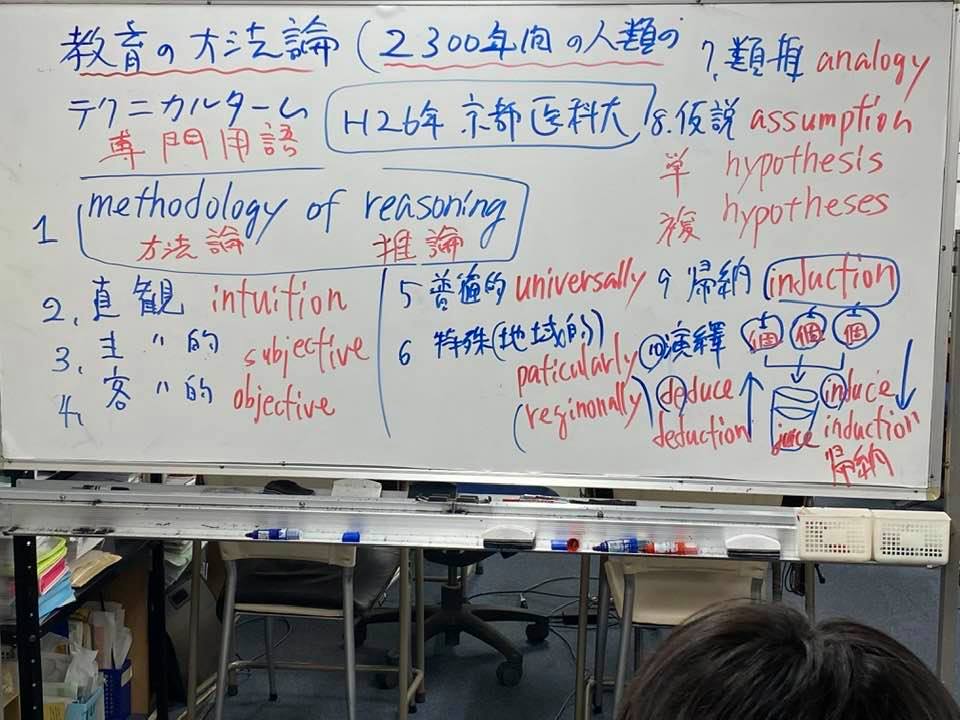 教育の方法論 (2300年間の人類の
テクニカルターム
専門用語
H26年 京都医科大
1 methodology of reasoning
方法論 推論
2. 直観 intuition
3. 主〃的 subjective
4. 客〃的 objective
5 普遍的 universally
6 特殊(地域的)
paticularly
(reginonally)
7. 類推 analogy
8. 仮説 assumption
単 hypothesis
複 hypotheses
9 帰納 induction
個 個 個
juice
induce
induction
帰納
⑩演繹
deduce
deduction